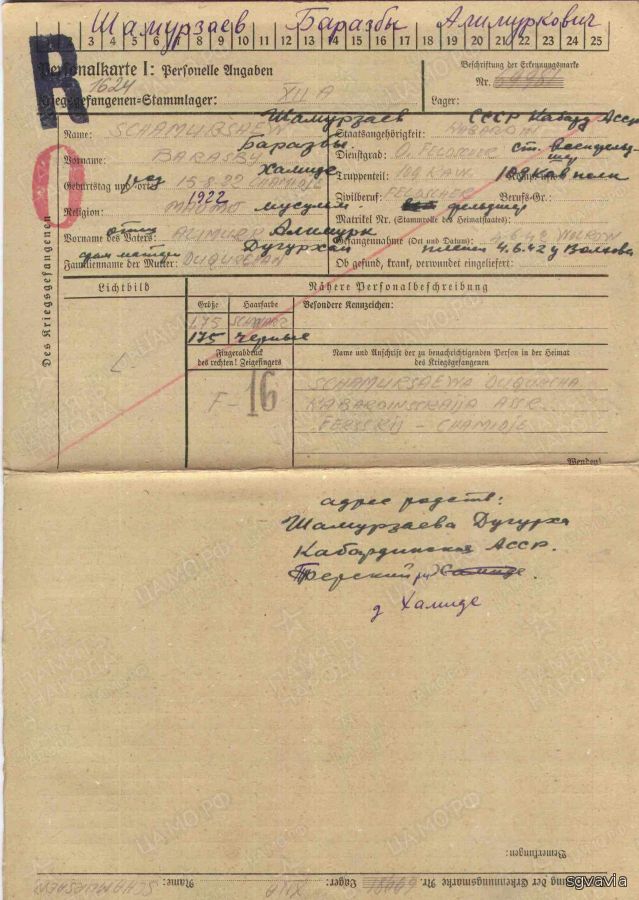 Шамурзаев Баразбы Алимуркович
3 4 5 6 7 8 9 10 11 12 13 14 15 16 17 18 19 20 21 22 23 24 25
R
Personalkarte I: Personelle Angaben
Beschriftung der Erkennungsmarke
1624
Nr.
Kriegsgefangenen-Stammlager: XII A
Lager:
Des Kriegsgefangenen
Name: SCHAMURSAEW Шамурзаев
Staatsangehörigkeit: KABARDIN СССР Кабард. Асср
Vorname: BARASBY Баразбы.
Dienstgrad: O. FELDSCHER ст.
Geburtstag und -ort: 15-8-22 CHAMIDJE Хамиде
Truppenteil: 109 KAW. 109 кав полк
1922
Zivilberuf: FELDSCHER фельдшер
Berufs-Gr.:
Religion: мусульм.
Matrikel Nr. (Stammrolle des Heimatstaates):
Vorname des Vaters: ALIMURK отца Алимурк
Gefangennahme (Ort und Datum): пленен 4.6.42 у
Familienname der Mutter: Дугурхан
Ob gefund, krank, verwundet eingeliefert:
Lichtbild
Nähere Personalbeschreibung
Größe
Haarfarbe
Besondere Kennzeichen:
1.75 SCHWARZ
175 черные
Fingerabdruck
des rechten! Zeigefingers
Name und Anschrift der zu benachrichtigenden Person in der Heimat
des Kriegsgefangenen
F-16
SCHAMURSAEWA DUGURCHA
KABARDINSKAIJA ASSR
CHAMIDJE
Wenden!
адрес родств:
Шамурзаева Дугурха
Кабардинская Асср.
Терский рн Хамиде.
д Хамиде
Bemerkungen:
Name: SCHAMURSAEW
Lager: XII A
der Erkennungsmarke Nr.
ПАМЯТЬ НАРОДА
ЦАМО.РФ
sgvavia